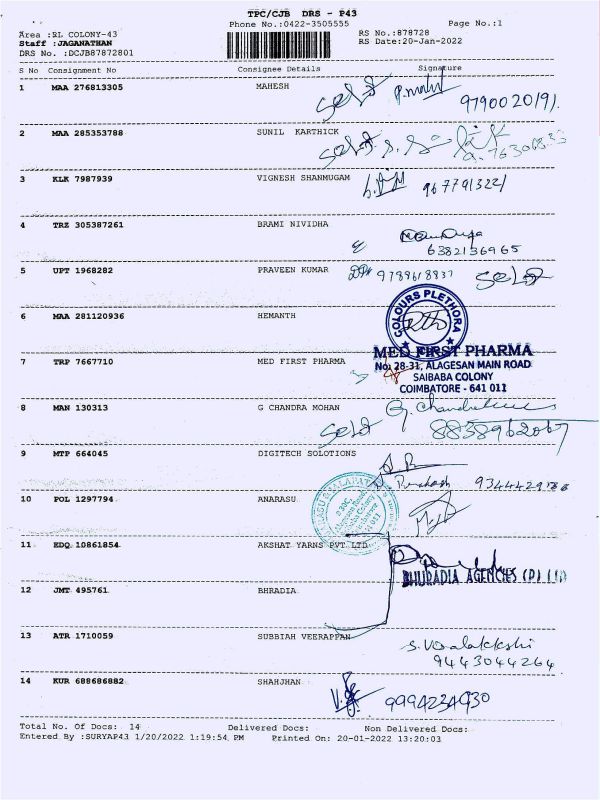 TPC/CJB DRS - P43
Phone No.:0422-3505555 Page No.:1
Area :RL COLONY-43 RS No.:878728
Staff :JAGANATHAN RS Date:20-Jan-2022
DRS No. :DCJB87872801
S No Consignment No Consignee Details Signature
1 MAA 276813305 MAHESH
Self 9790020191
2 MAA 285353788 SUNIL KARTHICK
Self
3 KLK 7987939 VIGNESH SHANMUGAM
9677913221
4 TRZ 305387261 BRAMI NIVIDHA
6382136965
5 UPT 1968282 PRAVEEN KUMAR 9789618837 Self
6 MAA 281120936 HEMANTH
COLOURS PLETHORA
7 TRP 7667710 MED FIRST PHARMA
MED FIRST PHARMA
No: 28-31, ALAGESAN MAIN ROAD
SAIBABA COLONY
COIMBATORE - 641 011
8 MAN 130313 G CHANDRA MOHAN
Self 8838962067
9 MTP 664045 DIGITECH SOLOTIONS
Prakash
10 POL 1297794 ANARASU
11 EDQ 10861854 AKSHAT YARNS PVT LTD
BHURADIA AGENCIES (P) LTD
12 JMT 495761 BHRADIA
13 ATR 1710059 SUBBIAH VEERAPPAN
9443044264
14 KUR 688686882 SHAHJHAN
9994234930
Total No. Of Docs: 14 Delivered Docs: Non Delivered Docs:
Entered By :SURYAP43 1/20/2022 1:19:54 PM Printed On: 20-01-2022 13:20:03